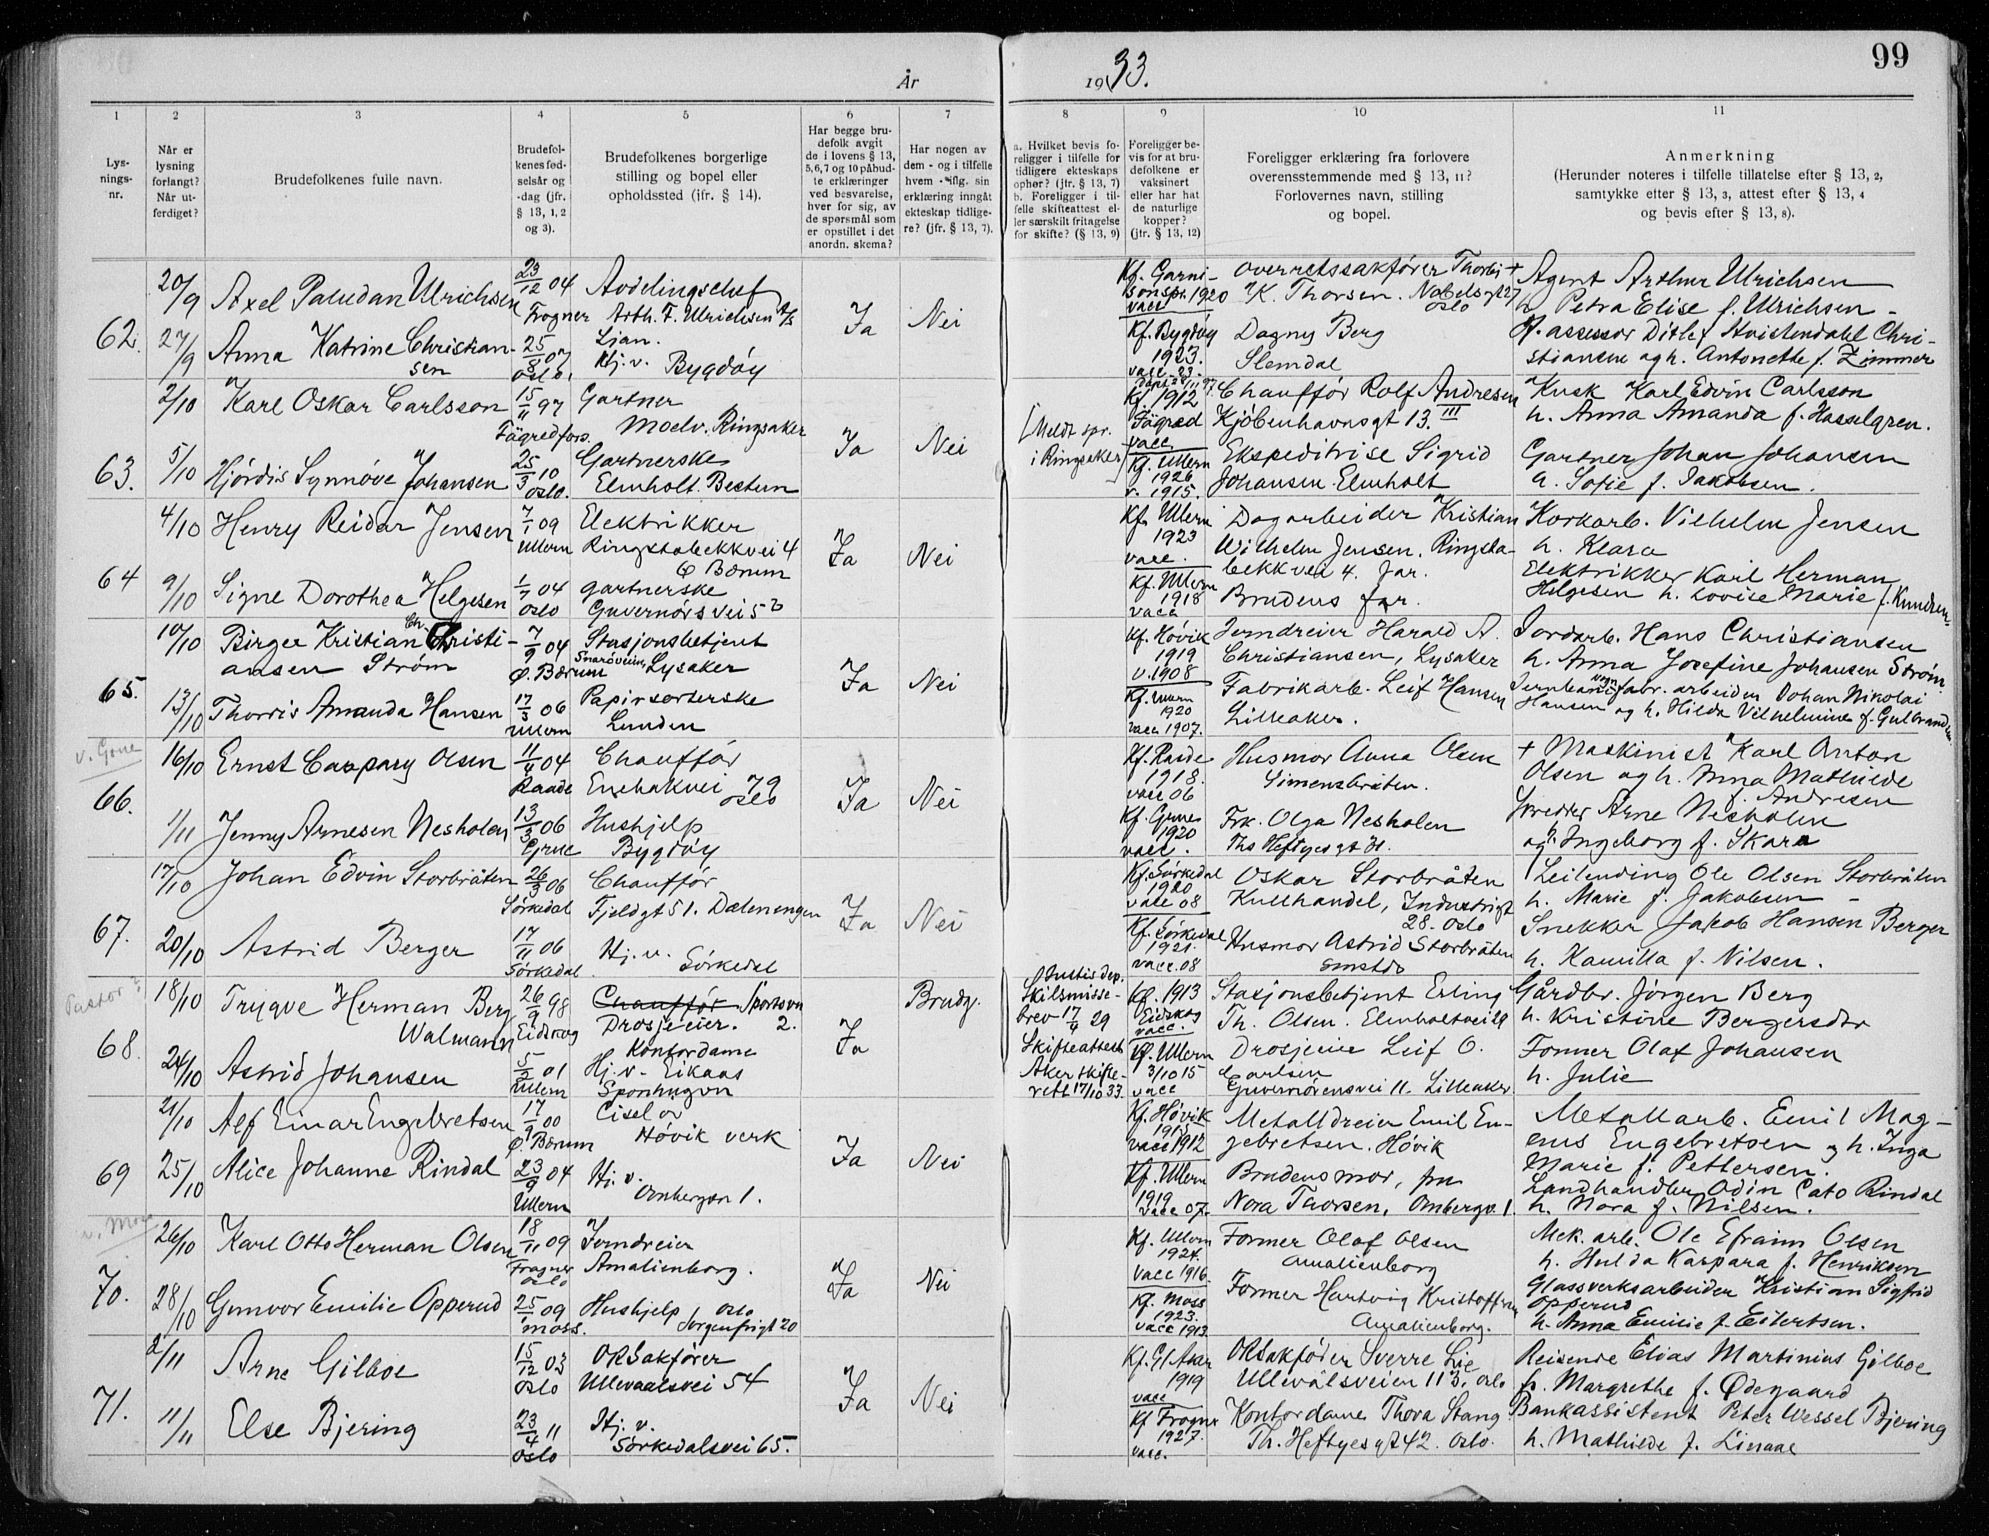 99
År 1933.
1 2 3 4 5 6 7 8 9 10 11
Lys-
nings-
nr.
Når er
lysning
forlangt?
Når ut-
ferdiget?
Brudefolkenes fulle navn.
Brudefol-
kenes fød-
selsår og
-dag (jfr.
§ 13, 1, 2
og 3).
Brudefolkenes borgerlige
stilling og bopel eller
opholdssted (jfr. § 14).
Har begge bru-
defolk avgit
de i lovens § 13,
5,6,7 og 10 påbud-
te erklæringer
ved besvarelse,
hver for sig, av
de spørsmål som
er opstillet i det
anordn. skema?
Har nogen av
dem - og i tilfelle
hvem - iflg. sin
erklæring inngåt
ekteskap tidlige-
re? (jfr. § 13, 7).
a. Hvilket bevis fo-
religger i tilfelle for
tidligere ekteskaps
ophør? (jfr. § 13, 7)
b. Foreligger i til-
felle skifteattest el-
ler særskilt fritagelse
for skifte? (§ 13, 9)
Foreligger be-
vis for at bru-
defolkene er
vaksinert
eller har hat
de naturlige
kopper?
(jfr. § 13, 12)
Foreligger erklæring fra forlovere
overensstemmende med § 13, 11?
Forlovernes navn, stilling
og bopel.
Anmerkning
(Herunder noteres i tilfelle tillatelse efter § 13, 2,
samtykke efter § 13, 3, attest efter § 13, 4
og bevis efter § 13, 8).
62.
20/9 Axel Paludan Ulrichsen 23/12 04 Frogner
Avdelingschef
Arth. F. Ulrichsen A/S
Ljan.
Ja Nei
Kf. Garni-
sonspr. 1920
vacc
Overretssakfører Thorbj
K. Thorsen. Nobelsgt 27
Oslo
+ Agent Arthur Ulrichsen
h. Petra Elise f. Ulrichsen -
27/9 Anna Katrine Christian-
sen 25/8 07 Oslo.
Hj. v. Bygdøy
Kf. Bygdøy
1923.
vacc. 23.
Dagny Berg
Slemdal
assessor Ditlef Hvistendahl Chri-
stiansen og h. Antonette f. Zimmer
63.
2/10 Karl Oskar Carlsson 15/11 97
Fägredfors.
Gartner
Moelv. Ringsaker
Ja Nei
[Meldt spr.
i Ringsaker]
Kf. 1912
Fägred
vacc
Chauffør Rolf Andresen
Kjøbenhavnsgt 13. III
Kusk Karl Edvin Carlsson
h. Anna Amanda f. Hasselgren.
5/10 Hjørdis Synnøve Johansen 25/3 10 Oslo.
Gartnerske
Elmholt. Bestum
Kf. Ullern
1926
v. 1915.
Ekspeditrise Sigrid
Johansen. Elmholt
Gartner Johan Johansen
h. Sofie f. Jakobsen.
64
4/10 Henry Reidar Jensen 7/1 09 Ullern
Elektrikker
Ringstabekkvei 4
Ø Bærum
Ja Nei
Kf. Ullern
1923
vacc.
Dagarbeider Kristian
Wilhelm Jensen. Ringsta-
bekkvei 4. Jar.
Korkarb. Vilhelm Jensen
h. Klara
9/10 Signe Dorothea Helgesen 1/7 04 Oslo
gartnerske
Guvernørsvei 5 b
Kf. Ullern
1918
vacc
Brudens far.
Elektrikker Karl Herman
Helgesen h. Lovice Marie f. Knudsen
65.
10/10 Birger Kristian Christi-
ansen Strøm 7/9 04 Ø. Bærum
Stasjonsbetjent
Snarøveien, Lysaker
Ja Nei
Kf. Høvik
1919
v. 1908
Jerndreier Harald A.
Christiansen, Lysaker
Jordarb. Hans Christiansen
h. Anna Josefine Johansen Strøm
13/10 Thorris Amanda Hansen 17/3 06 Ullern
Papirsorterske
Lunden
Kf. Ullern
1920
vacc 1907.
Fabrikarb. Leif Hansen
Lilleaker.
Jernbanevognfabr. arbeider Johan Nikolai
Hansen og h. Hilda Vilhelmine f. Gulbrandsen
v. Grue
66.
16/10 Ernst Caspary Olsen 11/4 04 Raade
Chauffør
Enebakvei 79
Oslo
Ja Nei
Kf. Raade
1918.
vacc 06
Husmor Anna Olsen
Simensbråten.
+ Maskinist Karl Anton
Olsen og h. Anna Mathilde
f. Andresen
1/11 Jenny Arnesen Nesholen 13/3 06 Grue
Hushjelp
Bygdøy
Kf. Grue
1920
vacc.
Frk. Olga Nesholen
Ths Heftyesgt 41.
Arne Nesholen
og h. Ingeborg f. Skara
67.
17/10 Johan Edvin Storbråten 26/3 06 Sørkedal
Chauffør
Fjeldgt 51. Dælenengen
Ja Nei
Kf. Sørkedal
1920
vacc 08
Oskar Storbråten
Kullhandel, Industrigt
28. Oslo
Leilending Ole Olsen Storbråten
h. Marie f. Jakobsen -
20/10 Astrid Berger 17/11 06 Sørkedal
Hj. v.
Sørkedal
Kf. Sørkedal
1921.
vacc. 08
Husmor Astrid Storbråten
smstds
Snekker Jakob Hansen Berger
h. Kamilla f. Nilsen.
Pastor?
68.
18/10 Trygve Herman Berg
Walmann 26/9 98 Eidskog
Chauffør Sportsvn
Drosjeeier. 2.
Ja Brudg.
Justisdep.
Skilsmisse-
brev 17/4 29
Skifteattest
Aker skifte-
rett 17/10 33.
Kf. 1913
Eidskog
vacc.
Stasjonsbetjent Erling
Th. Olsen. Elmholtvei 19
Gårdbr. Jørgen Berg
h. Kristine Bergersdtr
24/10 Astrid Johansen 5/5 01 Ullern
Kontordame
Hj. v. Eikaas
Sponhugvn
Kf. Ullern
3/10 15
vacc
Drosjeeier Leif O.
Carlsen
Guvernørensvei 11. Lilleaker
Former Olaf Johansen
h. Julie
69
21/10 Alf Einar Engebretsen 17/9 00 Ø. Bærum
Ciselør
Høvik verk
Ja Nei
Kf. Høvik
1915
vacc 1912
Metalldreier Emil En-
gebretsen. Høvik
Metallarb. Emil Mag-
nus Engebretsen og h. Inga
Marie f. Pettersen.
25/10 Alice Johanne Rindal 23/9 04 Ullern
Hj. v.
Ornbergvn 1.
Kf. Ullern
1919
vacc 07.
Brudens mor, fru
Nora Thorsen, Ornbergv. 1.
Landhandler Odin Cato Rindal
h. Nora f. Nilsen.
v. Moss
70.
26/10 Karl Otto Herman Olsen 18/11 09 Frogner
Oslo
Jerndreier
Amalienborg.
Ja Nei
Kf. Ullern
1924.
vacc 1916.
Former Olaf Olsen
Amalienborg
Mek. arb. Ole Efraim Olsen
h. Hulda Kaspara f. Henriksen
28/10 Gunvor Emilie Opperud 25/1 09 Moss.
Hushjelp Oslo
Sorgenfrigt 20
Kf. Moss
1923.
vacc 1913.
Former Hartvig Kristoffersen
Amalienborg.
Glassverksarbeider Kristian Sigfrid
Opperud
h. Anna Emilie f. Eilertsen.
71.
2/11 Arne Gilboe 15/12 03 Oslo
ORSakfører
Ullevaalsvei 54
Ja Nei
Kf. Gl Aker
1919
vacc
ORSakfører Sverre Lie
Ullevålsveien 113. Oslo
Reisende Elias Martinius Gilboe
h. Margrethe f. Ødegaard
11/11 Else Bjering 23/4 11 Oslo
Hj. v.
Sørkedalsvei 65.
Kf Frogner
1927.
vacc.
Kontordame Thora Stang
Th. Heftyesgt 42. Oslo.
Bankassistent Peter Wessel Bjering
h. Mathilde f. Linaae